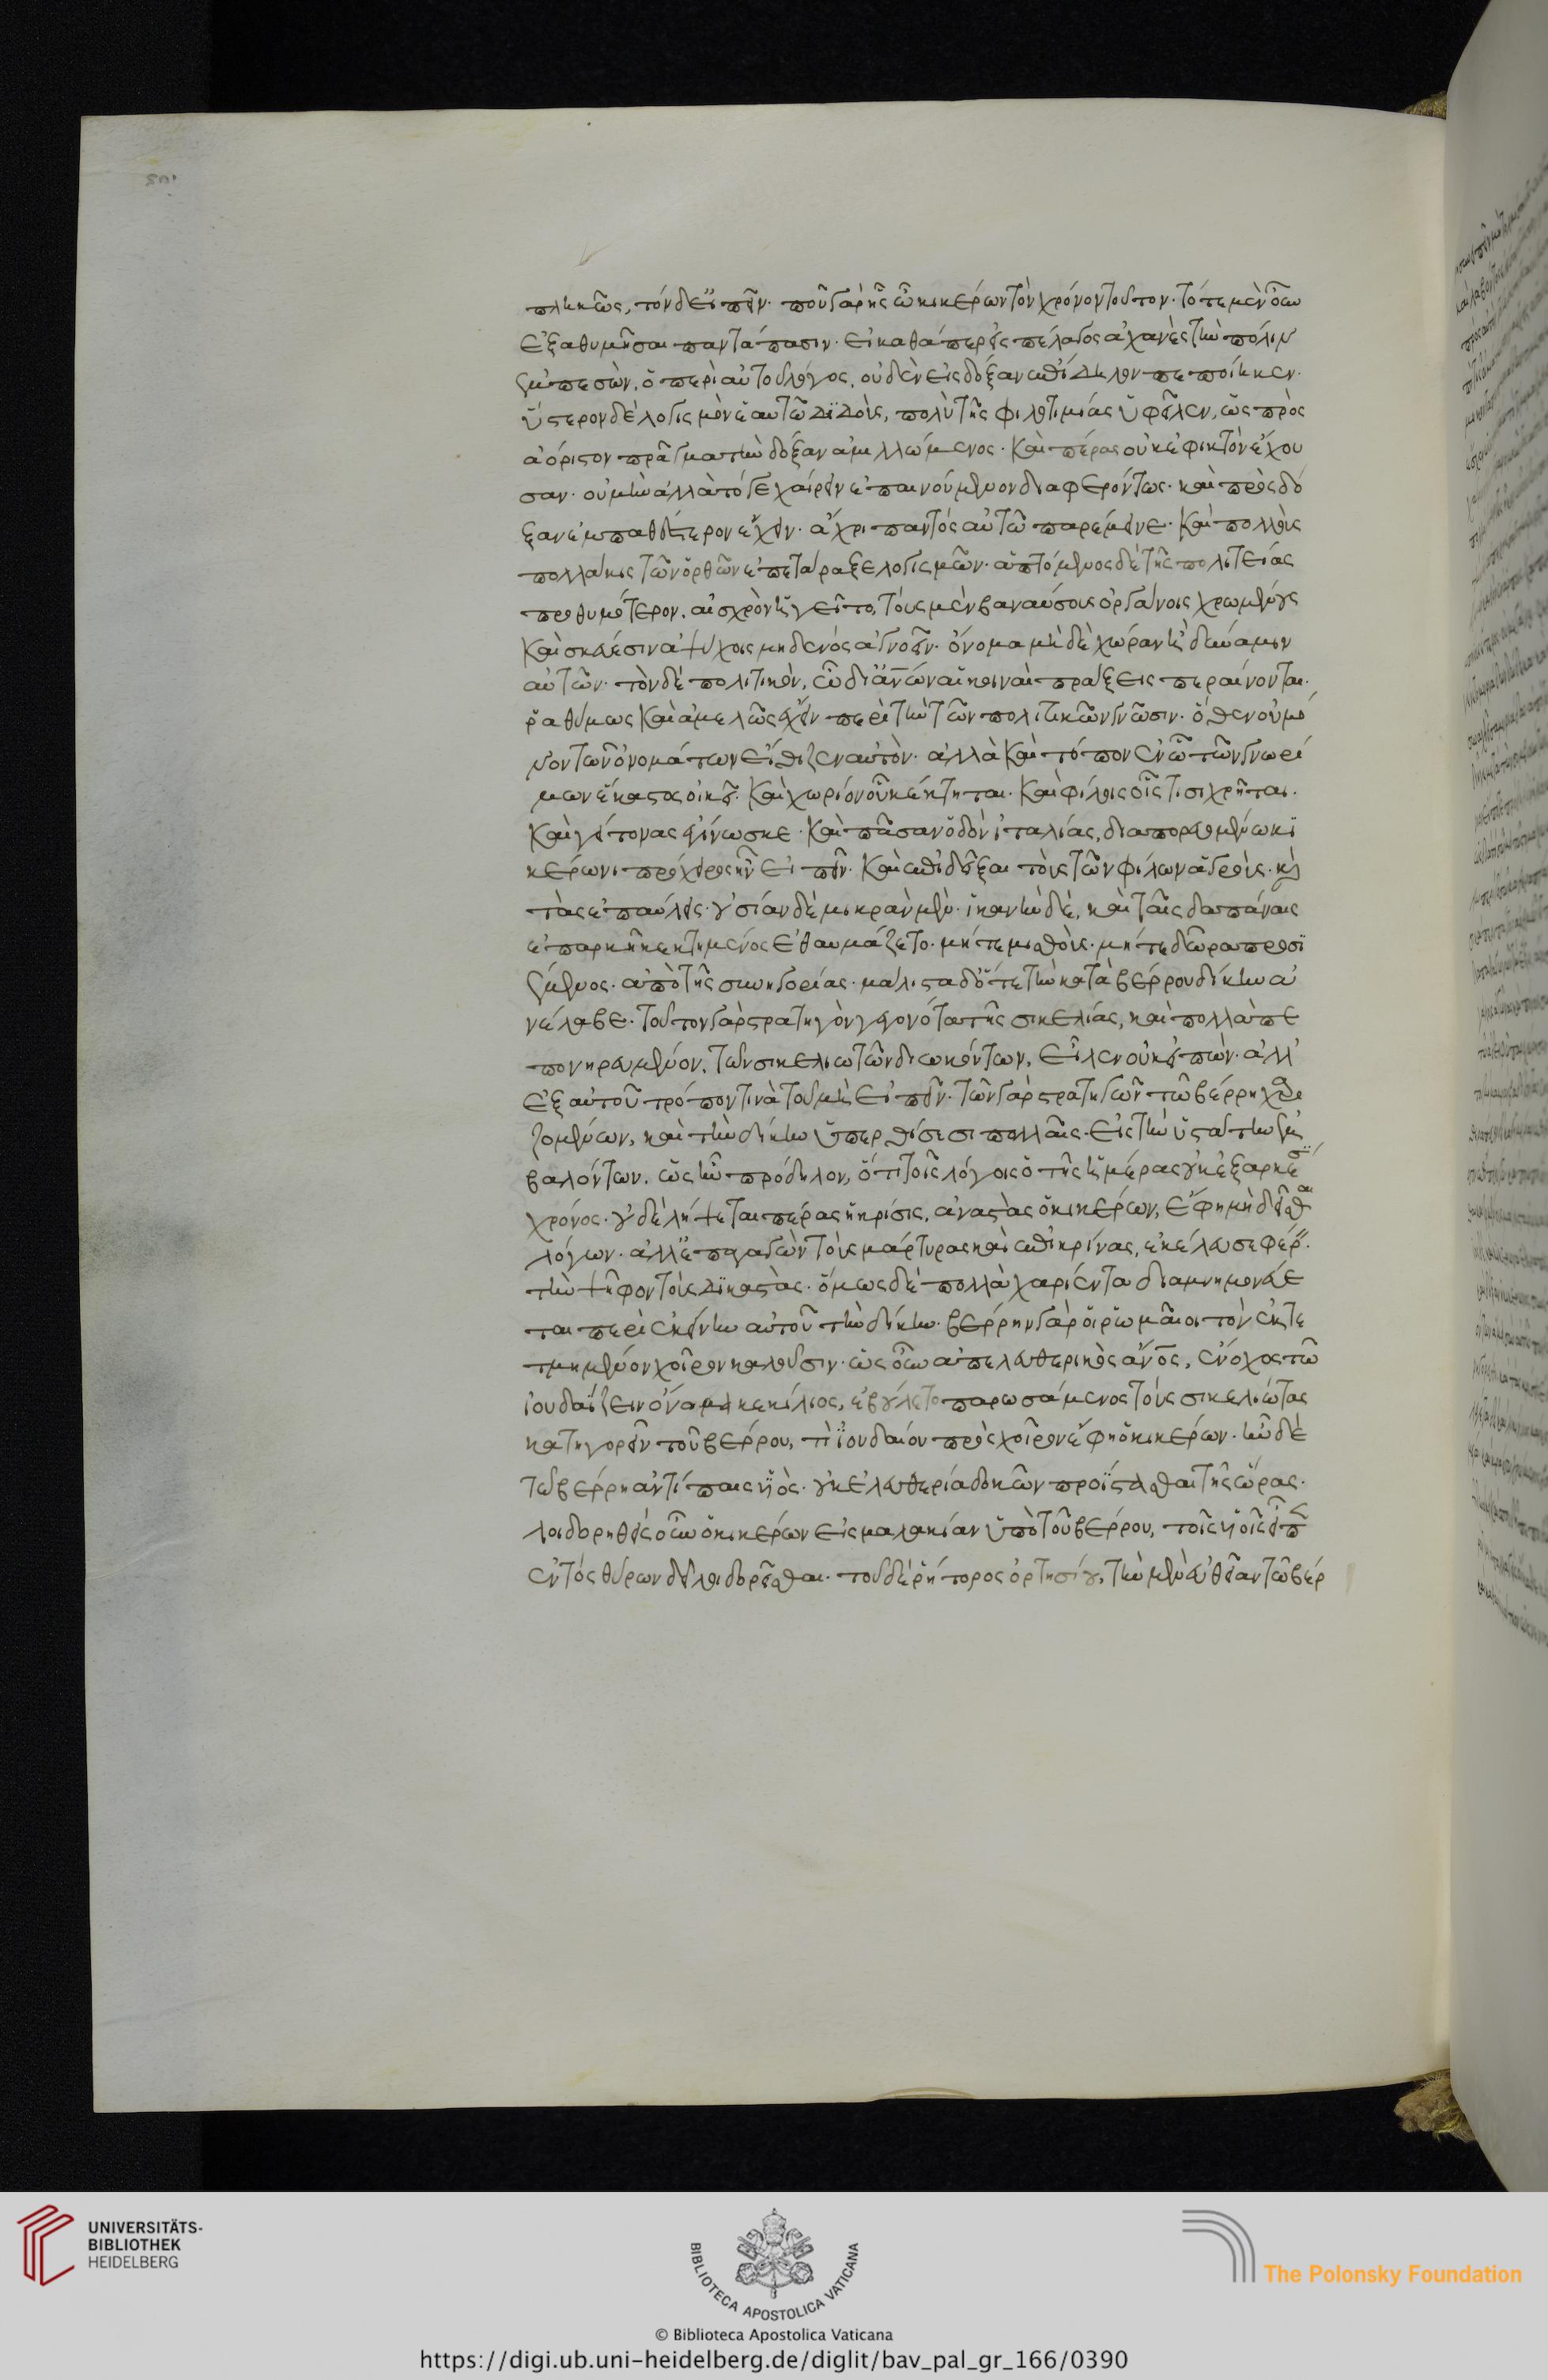 πληκῶς, τὸν δεἰπεῖν· ποῦ γὰρ ἦς ὦ κικέρων τὸν χρόνον τοῦτον. τότε μὲν οὖν
ἐξαθυμῆσαι παντάπασιν· εἰ καθάπερ εἰς πέλαγος ἀχανὲς τὴν πόλιν
ἐμπεσὼν, ὁ περὶ αὐτοῦ λόγος, οὐδὲν εἰς δόξαν ἐπίδηλον πεποίηκεν.
ὕστερον δὲ λογισμὸν ἑαυτῷ διδοὺς, πολὺ τῆς φιλοτιμίας ὑφεῖλεν, ὡς πρὸς
ἀόριστον πρᾶγμα τὴν δόξαν ἁμιλλώμενος· καὶ πέρας οὐκ ἐφικτὸν ἔχου
σαν· οὐ μὴν ἀλλὰ τό γε χαίρειν ἐπαινούμενον διαφερόντως· καὶ πρὸς δό
ξαν ἐμπαθέστερον ἔχειν· ἄχρι παντὸς αὐτῷ παρέμεινε· καὶ πολλοὺς
πολλάκις τῶν ὀρθῶν ἐπετάραξε λογισμῶν· ἁπτόμενος δὲ τῆς πολιτείας
προθυμότερον, αἰσχρὸν ἡγεῖτο, τοὺς μὲν βαναύσους ὀργάνοις χρωμένους
καὶ σκεύεσιν ἀψύχοις μηδενὸς ἀγνοεῖν· ὄνομα μὴ δὲ χώραν ἢ δύναμιν
αὐτῶν· τὸν δὲ πολιτικὸν, ᾧ δι ἀνων αἱ κοιναὶ πράξεις περαίνονται.
ῥαθύμως καὶ ἀμελῶς ἔχειν περὶ τὴν τῶν πολιτικῶν γνῶσιν· ὅθεν οὐ μό
νον τῶν ὀνομάτων εἴθιζεν αὐτὸν· ἀλλὰ καὶ τόπον ἐν ᾧ τῶν γνωρί
μων ἕκαστος οἰκεῖ· καὶ χωρίον οὗ κέκτηται· καὶ φίλοις οἷς τισι χρῆται.
καὶ γείτονας γίνωσκε· καὶ πᾶσαν ὁδὸν ἰταλίας, διαπορευομένω κι
κέρωνι πρόχειρος ἦν εἰπεῖν· καὶ ἐπιδεῖξαι τοὺς τῶν φίλων ἀγροὺς· καὶ
τὰς ἐπαύλεις· οὐσίαν δὲ μικρὰν μὲν· ἱκανὴν δὲ, καὶ ταῖς δαπάναις
ἐπαρκῆ κεκτημένος ἐθαυμάζετο· μήτε μισθοὺς· μήτε δῶρα προσι
έμενος· ἀπὸ τῆς συνηγορίας· μάλιστα δ ὅτε τὴν κατὰ βέρρου δίκην ἀ
νέλαβε· τοῦτον γὰρ στρατηγὸν γεγονότα τῆς σικελίας, καὶ πολλὰ πε
πονηρευμένον, τῶν σικελιωτῶν διωκόντων, εἷλεν οὐκ εἰπὼν· ἀλλ'
ἐξ αὐτοῦ τρόπον τινὰ τοῦ μὴ εἰπεῖν· τῶν γὰρ στρατηγῶν τῷ βέρρη χαρι
ζομένων, καὶ τὴν δίκην ὑπερθέσεσι πολλαῖς· εἰς τὴν ὑστάτην ἐκ
βαλόντων, ὡς ἦν πρόδηλον, ὅτι τοῖς λόγοις ὁ τῆς ἡμέρας οὐκ ἐξαρκέσει
χρόνος· οὐδὲ λήψεται πέρας ἡ κρίσις, ἀναστὰς ὁ κικέρων, ἔφη μὴ δεῖσθαι
λόγων· ἀλλ' ἐπαγαγὼν τοὺς μάρτυρας καὶ ἐπικρίνας, ἐκέλευσε φέρειν.
τὴν ψῆφον τοὺς δικαστὰς· ὅμως δὲ πολλὰ χαρίεντα διαμνημονεύε
ται περὶ ἐκείνην αὐτοῦ τὴν δίκην· βέρρην γὰρ οἱ ῥωμαῖοι τὸν ἐκτε
τμημένον χοῖρον καλοῦσιν· ὡς οὖν ἀπελευθερικὸς ἄνος, ἔνοχος τῷ
ἰουδαΐζειν ὄνομα κεκίλιος, ἐβούλετο παρωσάμενος τοὺς σικελιώτας
κατηγορεῖν τοῦ βέρρου, τί ἰουδαίον πρὸς χοῖρον ἔφη ὁ κικέρων· ἦν δὲ
τῷ βέρρῃ ἀντίπαις υἱὸς· οὐκ ἐλευθερία δοκῶν προΐστασθαι τῆς ὥρας.
λοιδορηθεὶς οὖν ὁ κικέρων εἰς μαλακίαν ὑπὸ τοῦ βέρρου, τοῖς υἱοῖς εἶπεν
ἐντὸς θυρῶν δεῖ λοιδορεῖσθαι· τοῦ δὲ ῥήτορος ὁρτησίου, τὴν μὲν εὐθεῖαν τῷ βέρ
UNIVERSITÄTS-
BIBLIOTHEK
HEIDELBERG
BIBLIOTECA APOSTOLICA VATICANA
The Polonsky Foundation
© Biblioteca Apostolica Vaticana
https://digi.ub.uni-heidelberg.de/diglit/bav_pal_gr_166/0390